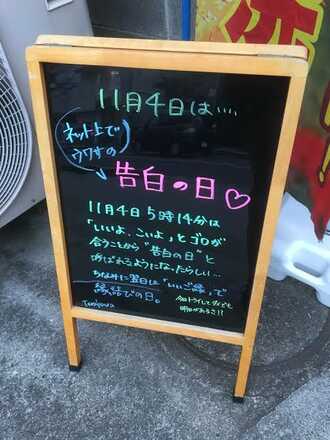 11月4日は....
ネット上で
ウワサの
告白の日♡
11月4日5時14分は
「いいよ、こいよ」とゴロが
合うことから“告白の日”と
呼ばれるようになったらしい...
ちなみに翌日は「いいご縁」で
縁結びの日。
今日トライしてダメでも
明日があるさ!!